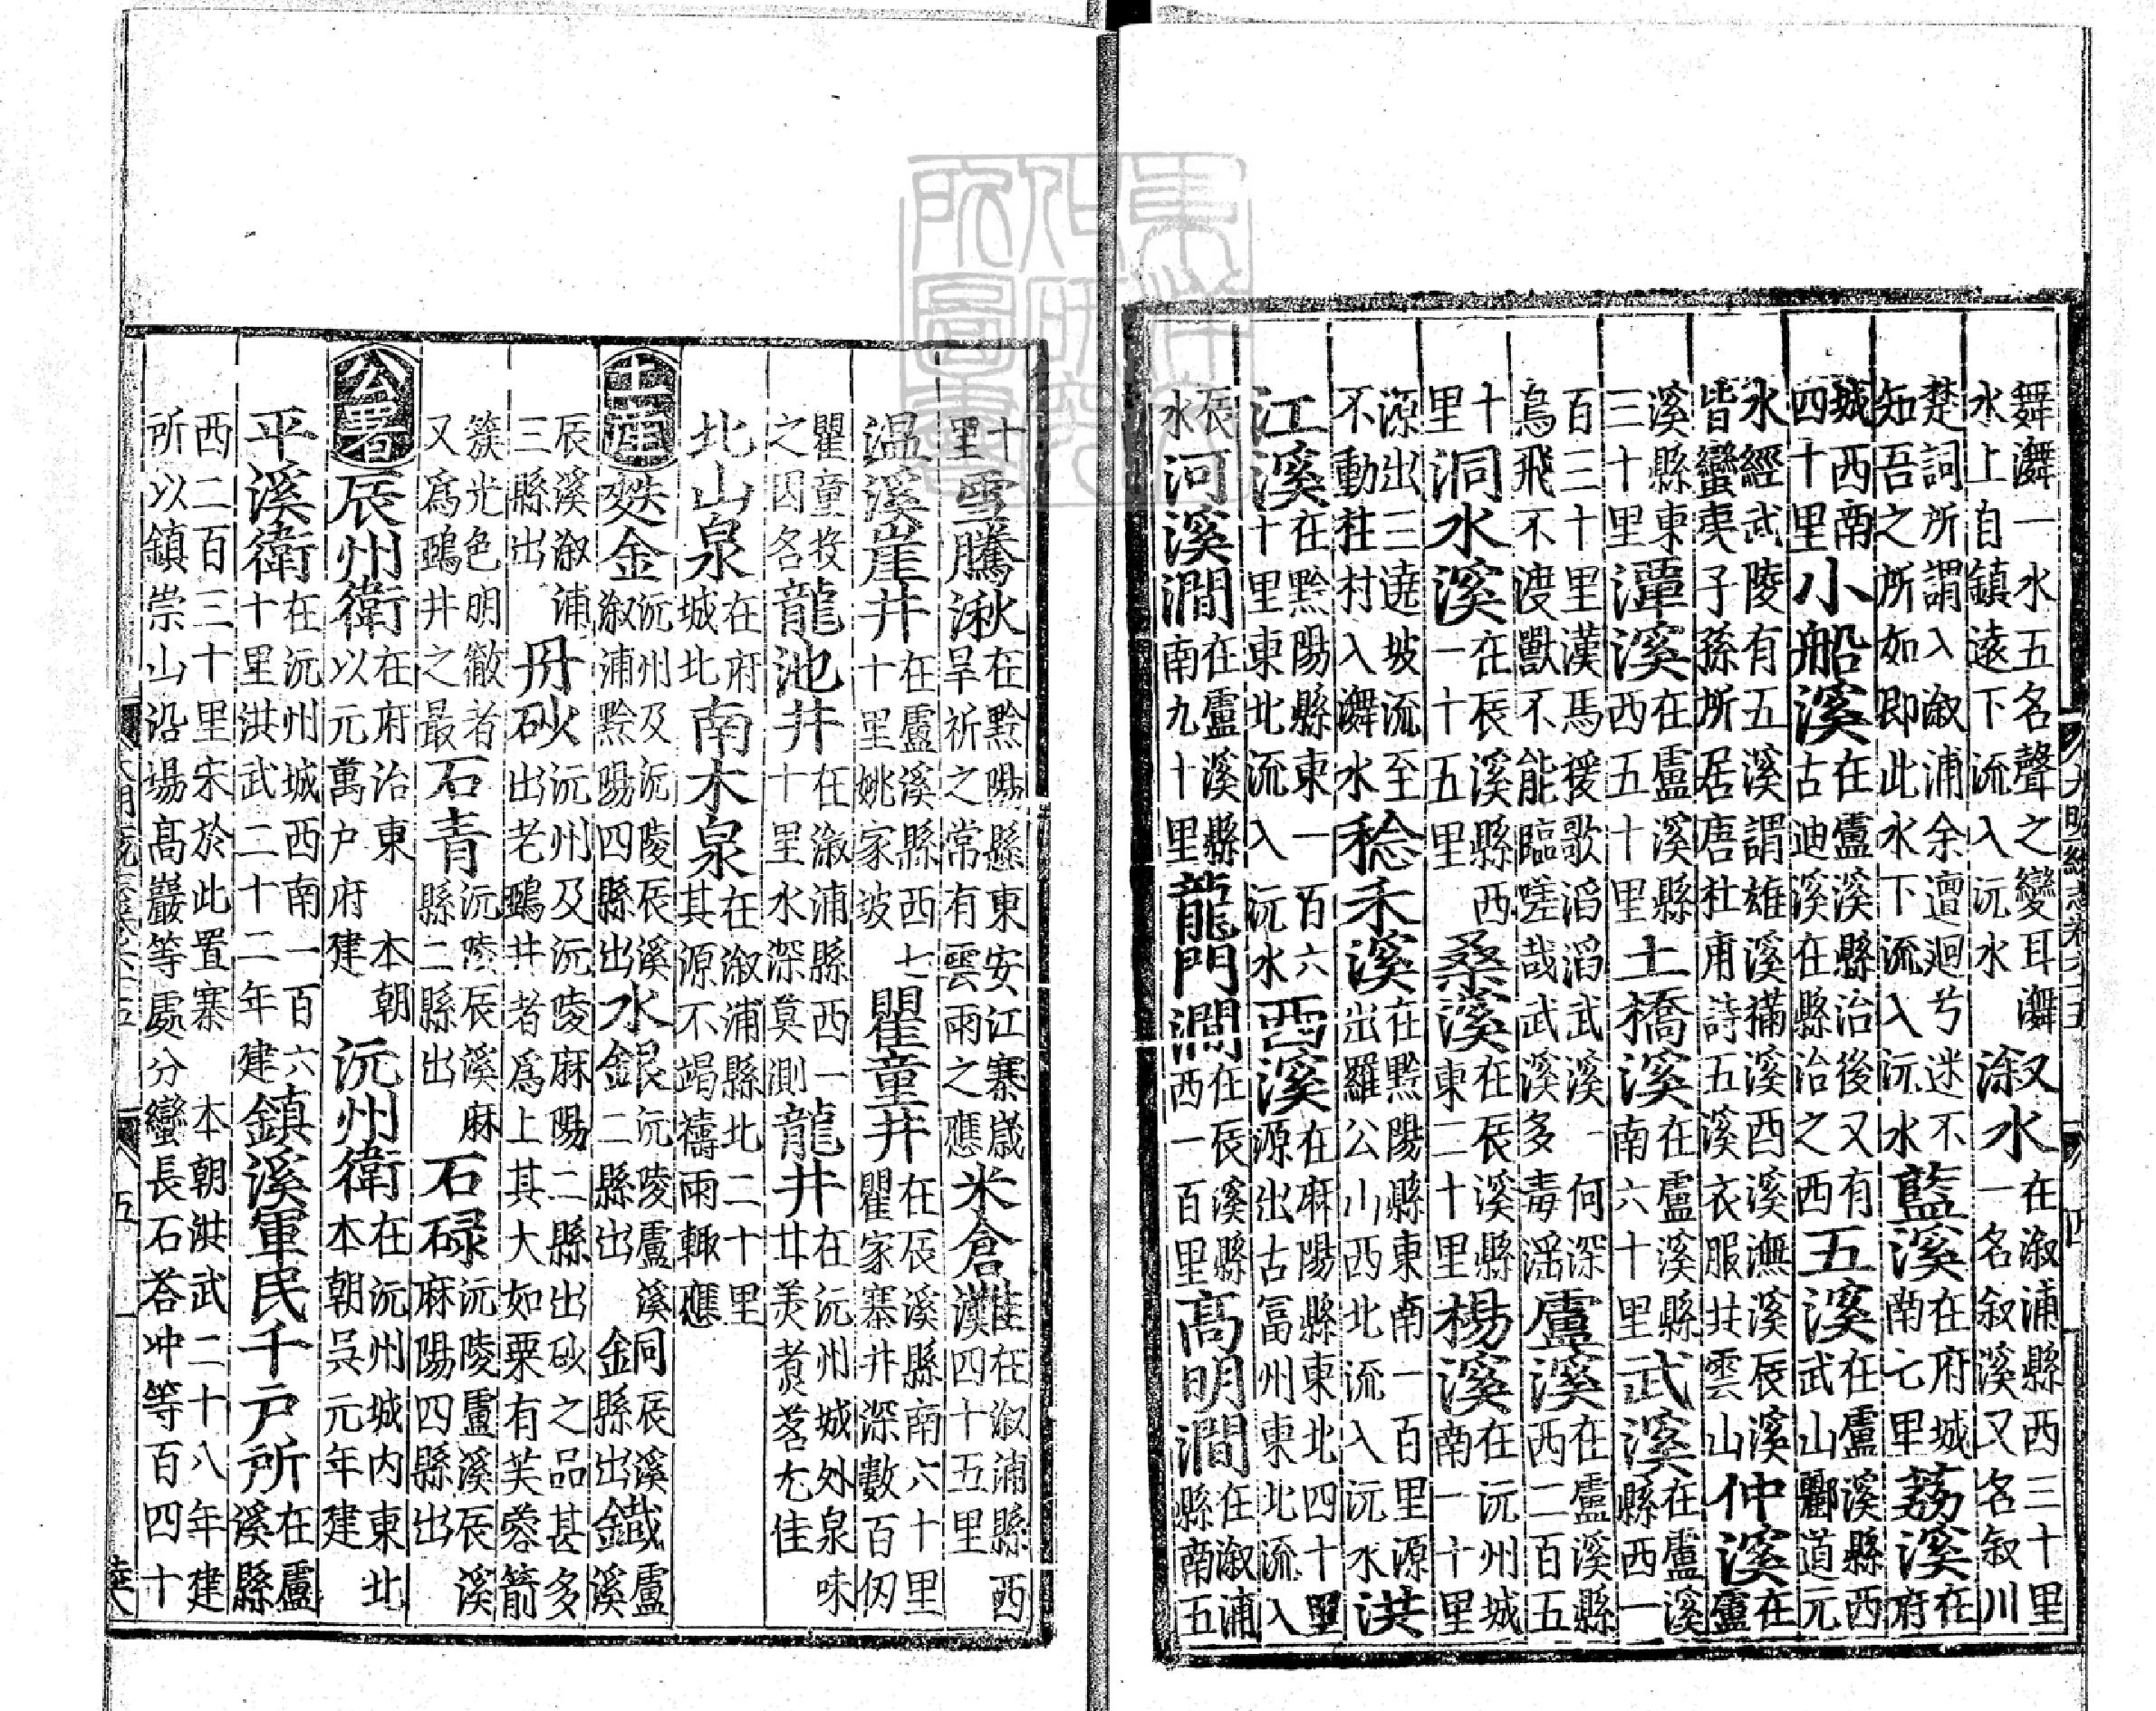 舞潕一水五名聲之變耳潕水上自鎮遠下流入沅水溆水在溆浦縣西三十里一名叙溪又名叙川
楚詞所謂入溆浦余邅迴兮迷不知吾之所如即此水下流入沅水藍溪在府城南七里荔溪在府
城西南四十里小船溪在盧溪縣治後又有古迪溪在縣治之西五溪在盧溪縣西武山酈道元
水經武陵有五溪謂雄溪樠溪酉溪潕溪辰溪皆蠻夷子孫所居唐杜甫詩五溪衣服共雲山仲溪在盧
溪縣東三十里潭溪在盧溪縣西五十里土橋溪在盧溪縣南六十里武溪在盧溪縣西一
百三十里漢馬援歌滔滔武溪一何深鳥飛不渡獸不能臨嗟哉武溪多毒淫盧溪在盧溪縣西二百五
十里洞水溪在辰溪縣西一十五里桑溪在辰溪縣東二十里楊溪在沅州城南一十里
源出三遶坡流至不動柱村入潕水稔禾溪在黔陽縣東南一百里源出羅公山西北流入沅水洪
江溪在黔陽縣東一百六十里東北流入沅水酉溪在麻陽縣東北四十里源出古富州東北流入
辰水河溪澗在盧溪縣南九十里龍門澗在辰溪縣西一百里高明澗在溆浦縣南五
十里雪騰湫在黔陽縣東安江寨歲旱祈之常有雲雨之應米倉灘在溆浦縣西四十五里
溫溪崖井在盧溪縣西七十里姚家坡瞿童井在辰溪縣南六十里瞿家寨井深數百仞
瞿童投之因名龍池井在溆浦縣西一十里水深莫測龍井在沅州城外泉味甘美煮茗尤佳
北山泉在府城北南木泉在溆浦縣北二十里其源不竭禱雨輒應
土產麩金沅州及沅陵辰溪溆浦黔陽四縣出水銀沅陵盧溪二縣出銅辰溪縣出鐵盧溪
辰溪溆浦三縣出丹砂沅州及沅陵麻陽二縣出砂之品甚多出老鵶井者為上其大如栗有芙蓉箭
簇光色明徹者又為鵶井之最石青沅陵辰溪麻縣二縣出石碌沅陵盧溪辰溪麻陽四縣出
公署辰州衛在府治東本朝以元萬户府建沅州衛在沅州城内東北本朝吳元年建
平溪衛在沅州城西南一百六十里洪武二十二年建鎮溪軍民千戶所在盧溪縣
西二百三十里宋於此置寨本朝洪武二十八年建所以鎮崇山沿場高巖等處分蠻長石荅冲等百四十